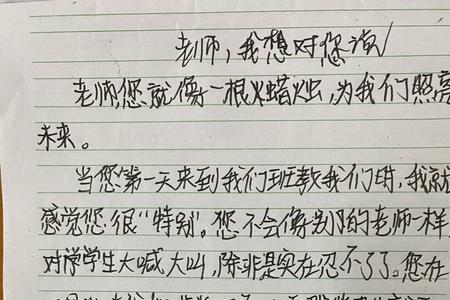 老师，我想对您说
老师，您就像一根火蜡烛，为我们照亮
未来。
当您第一天来到我们班教我们时，我就
感觉您很“特别”。您不会像别的老师一样，
对学生大喊大叫，除非是实在忍不了了。您在